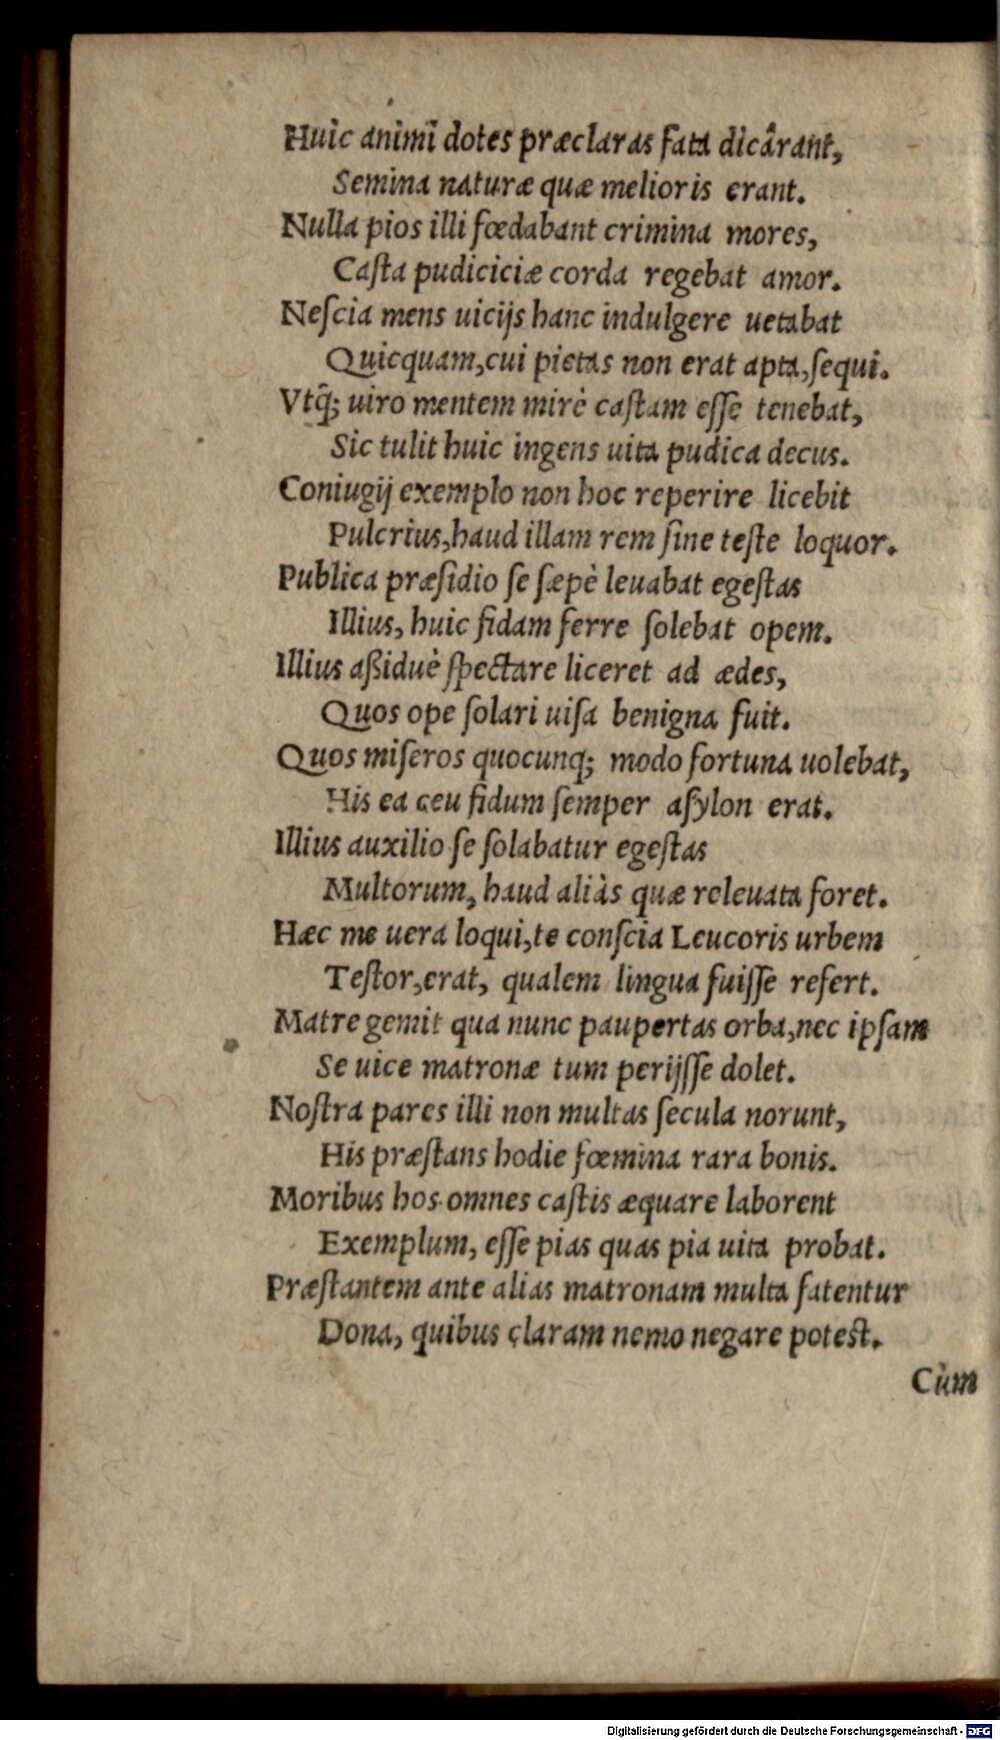 Huic animi dotes præclaras fata dicârant,
Semina naturæ quæ melioris erant.
Nulla pios illi fœdabant crimina mores,
Caſta pudiciciæ corda regebat amor.
Neſcia mens uicijs hanc indulgere uetabat
Quicquam,cui pietas non erat apta,ſequi.
Vtq̃; uiro mentem mirè caſtam eſſe tenebat,
Sic tulit huic ingens uita pudica decus.
Coniugij exemplo non hoc reperire licebit
Pulcrius,haud illam rem ſine teſte loquor.
Publica præſidio ſe ſæpè leuabat egeſtas
Illius, huic fidam ferre ſolebat opem.
Illius aßiduè ſpectare liceret ad ædes,
Quos ope ſolari uiſa benigna fuit.
Quos miſeros quocunq; modo fortuna uolebat,
His ea ceu fidum ſemper aſylon erat.
Illius auxilio ſe ſolabatur egeſtas
Multorum, haud aliàs quæ releuata foret.
Hæc me uera loqui,te conſcia Leucoris urbem
Teſtor,erat, qualem lingua fuiſſe refert.
Matre gemit qua nunc paupertas orba,nec ipſam
Se uice matronæ tum perijſſe dolet.
Noſtra pares illi non multas ſecula norunt,
His præſtans hodie fœmina rara bonis.
Moribus hos omnes caſtis æquare laborent
Exemplum, eſſe pias quas pia uita probat.
Præſtantem ante alias matronam multa fatentur
Dona, quibus claram nemo negare poteſt.
Cùm
Digitalisierung gefördert durch die Deutsche Forschungsgemeinschaft - DFG